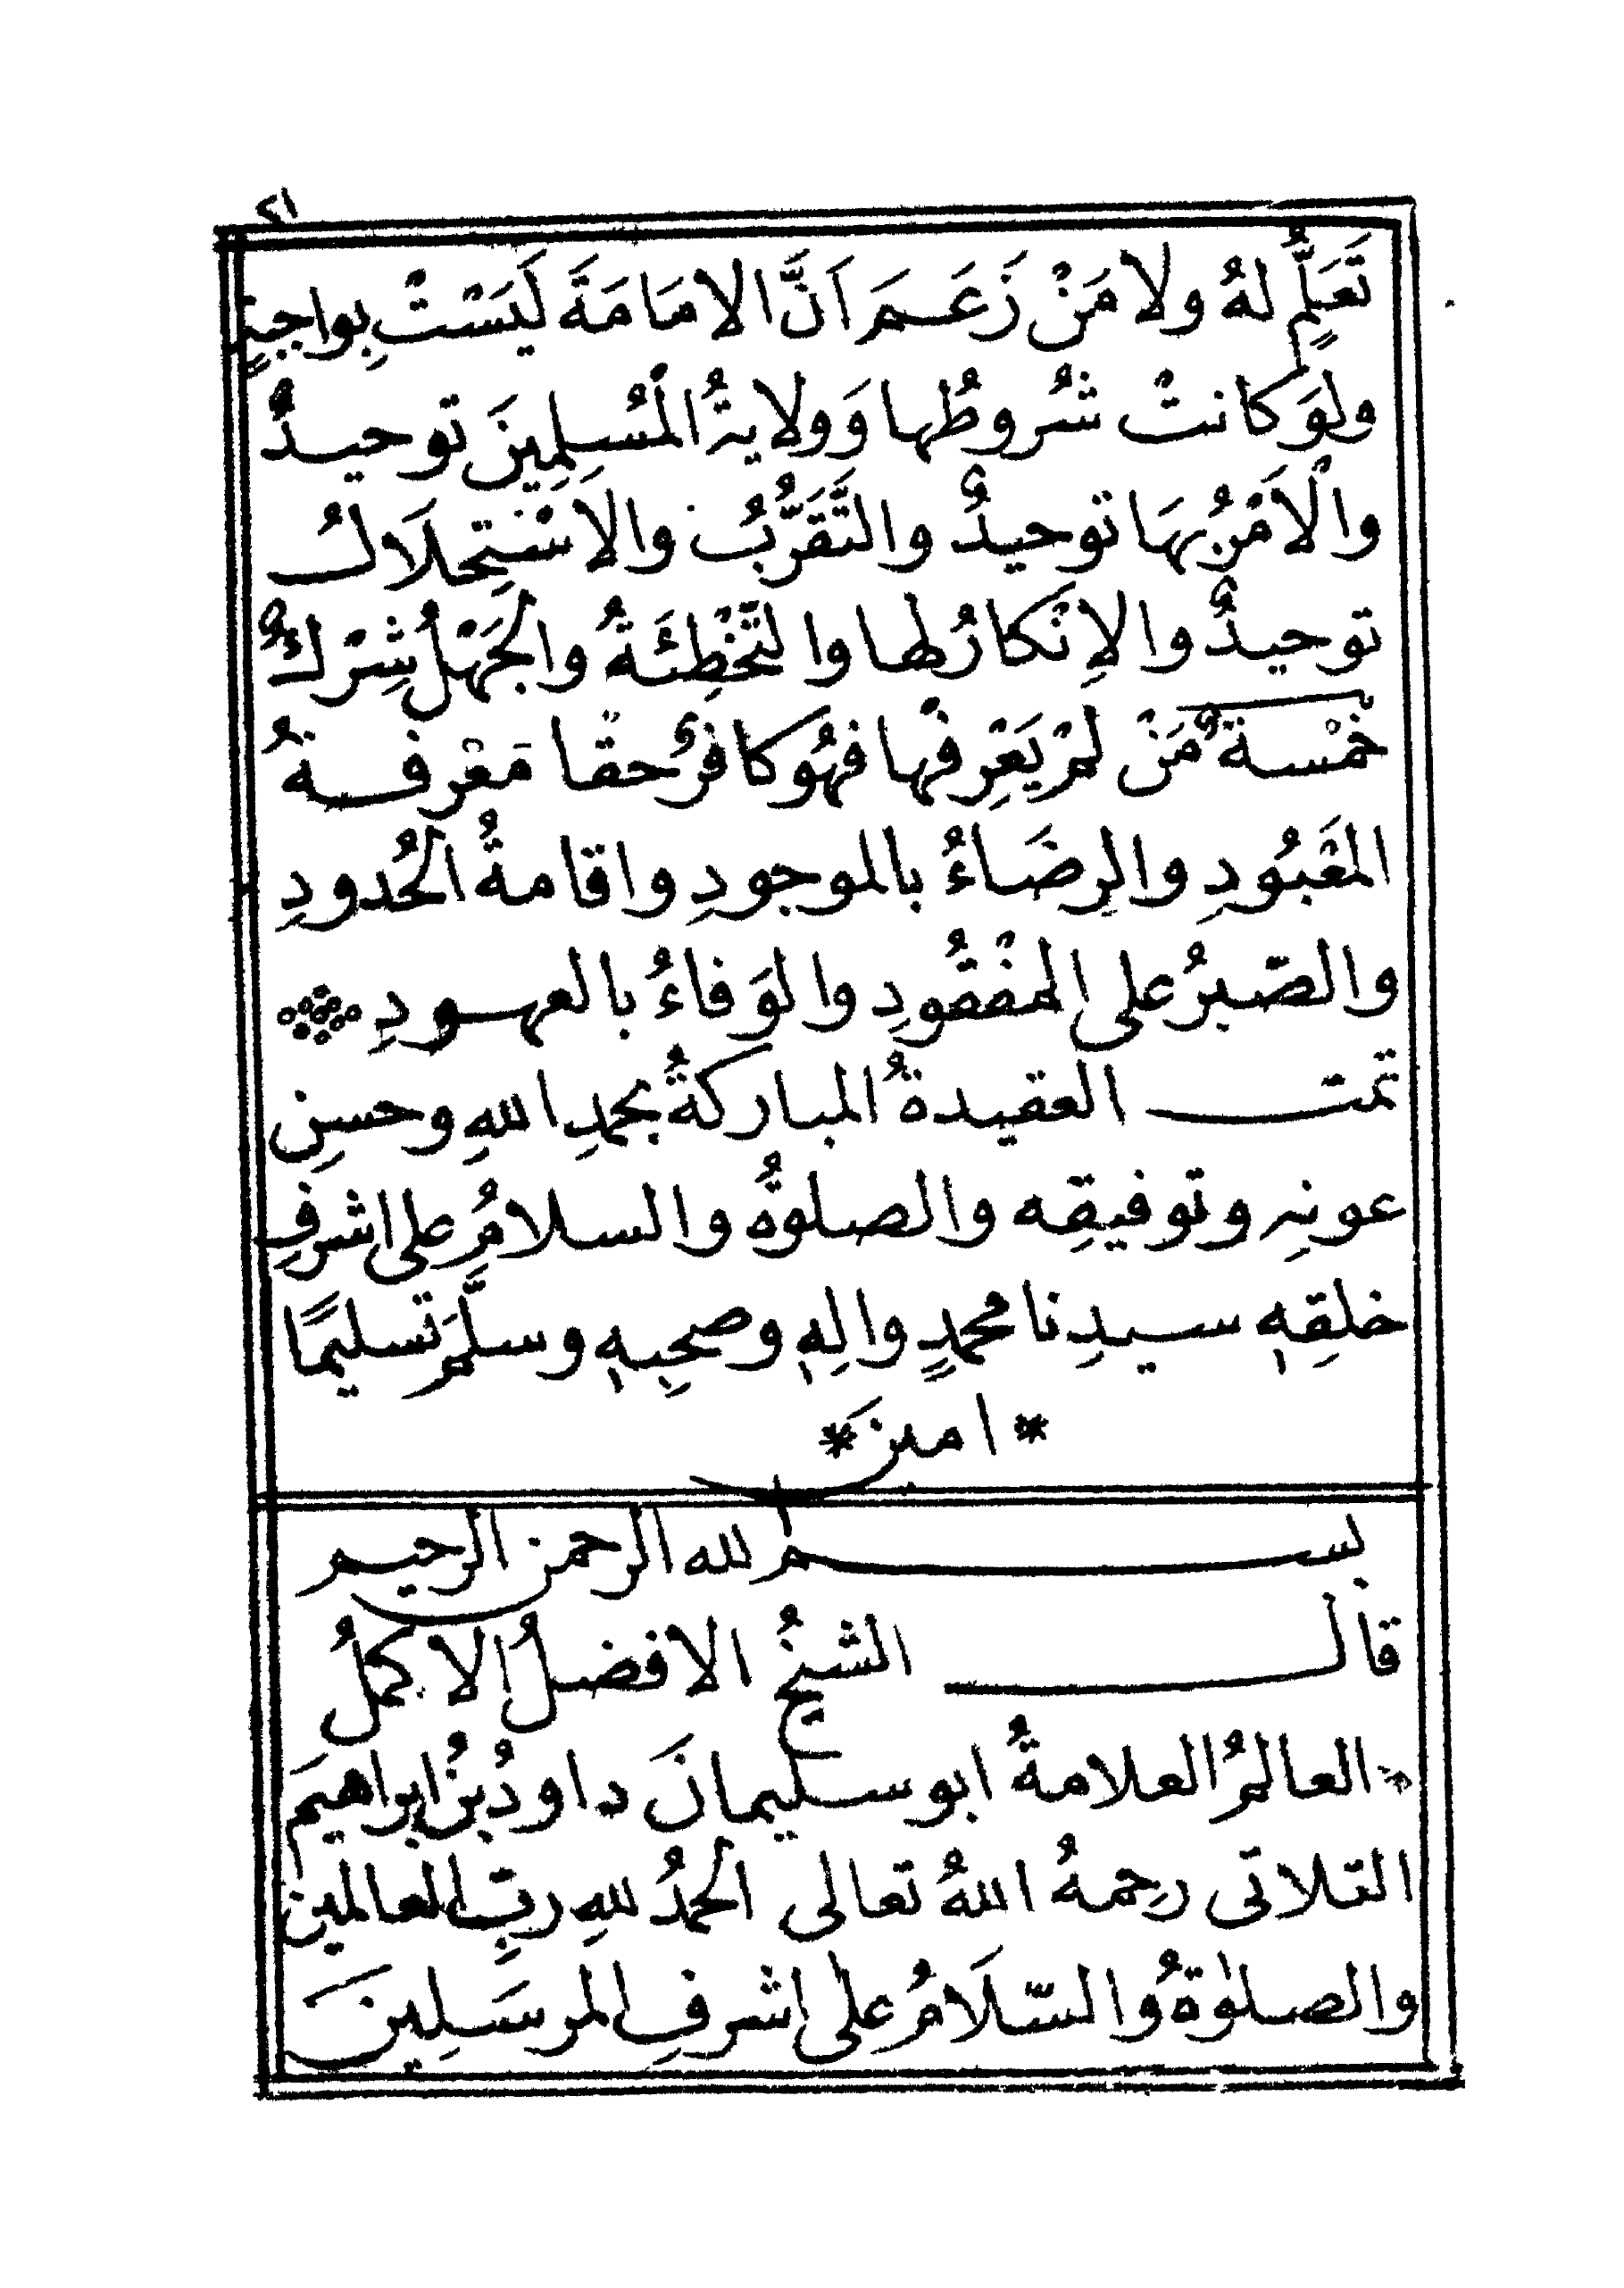 ٢١
تَعَلُّمٍ لهُ ولا مَنْ زَعَمَ اَنَّ الامَامَةَ لَيَسْتْ بِواجبةٍ
ولوَ كانتْ شُروطُها وَولايةُ المْسُلِمِينَ توحيدٌ
والْاَمْرُ بهَا توحيدٌ والتَّقَرُّبُ والاسْتِحلَالُ
توحيدٌ والاِنْكارُ لها والتّخْطِئَةُ والجَهْلُ شِرْكٌ
خمْسةٌ مَنْ لمْ يَعْرِفْها فهُو كافرٌ حقًا مَعْرفةُ
المَعْبُودِ والرِضَاءُ بالموجودِ واقامةُ الحُدودِ
والصّبرُ على المفْقُودِ والوَفاءُ بالعهودِ
تمت العقيدةُ المباركةُ بحمدِ اللهِ وحسنِ
عونِه وتوفيقِه والصلوةُ والسلامُ على اشرفِ
خلقِهٖ سيدِنا محمدٍ والِهٖ وصحبِهٖ وسلَّمَ تسليمًا
* امينَ *
بسم لله الرحمن الرحيم
قال الشيخُ الافضلُ الاكملُ
العالمُ العلامةُ ابو سليمانَ داودُ بنُ ابراهيم
التلاتى رحمهُ اللهُ تعالى الحمدُ للهِ ربِّ العالمين
والصلٰوةُ والسّلَامُ على اشرفِ المرسَلِينَ